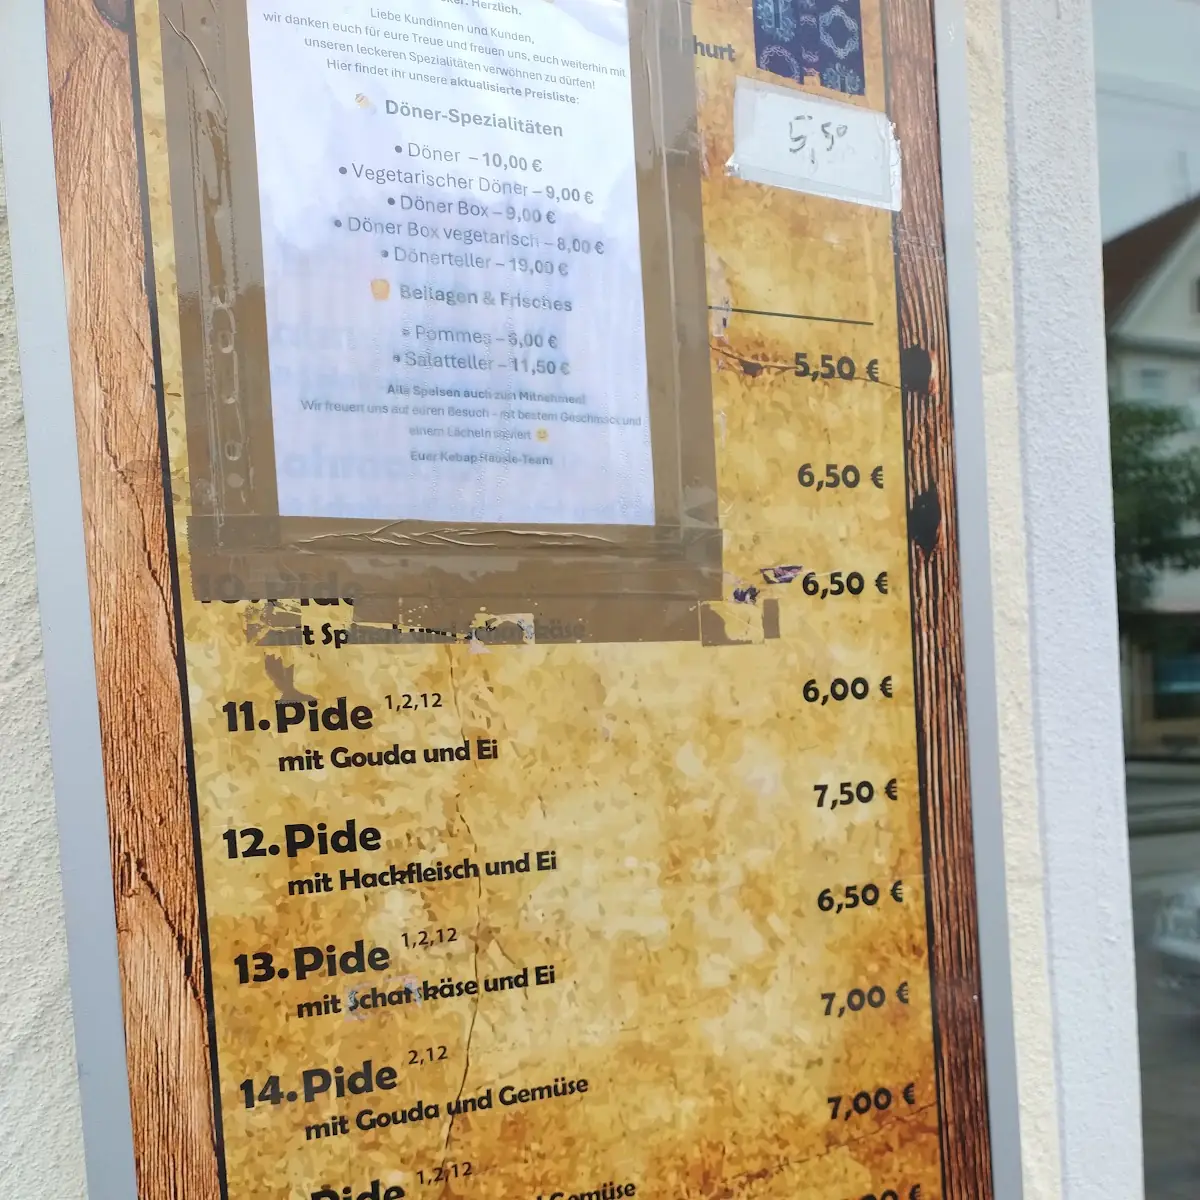 Herzlich.
Liebe Kundinnen und Kunden,
wir danken euch für eure Treue und freuen uns, euch weiterhin mit
unseren leckeren Spezialitäten verwöhnen zu dürfen!
Hier findet ihr unsere aktualisierte Preisliste:
Döner-Spezialitäten
• Döner – 10,00 €
• Vegetarischer Döner – 9,00 €
• Döner Box – 9,00 €
• Döner Box vegetarisch – 8,00 €
• Dönerteller – 19,00 €
Beilagen & Frisches
• Pommes – 6,00 €
• Salatteller – 11,50 €
Alle Speisen auch zum Mitnehmen!
Wir freuen uns auf euren Besuch – mit bestem Geschmack und
einem Lächeln serviert 😊
Euer Kebap Häusle-Team
5,50
5,50 €
6,50 €
10. Pide 6,50 €
mit Spinat und Schafskäse
11. Pide 1,2,12 6,00 €
mit Gouda und Ei
12. Pide 7,50 €
mit Hackfleisch und Ei
13. Pide 1,2,12 6,50 €
mit Schafskäse und Ei
14. Pide 2,12 7,00 €
mit Gouda und Gemüse
Pide 1,2,12 7,00 €
Gemüse